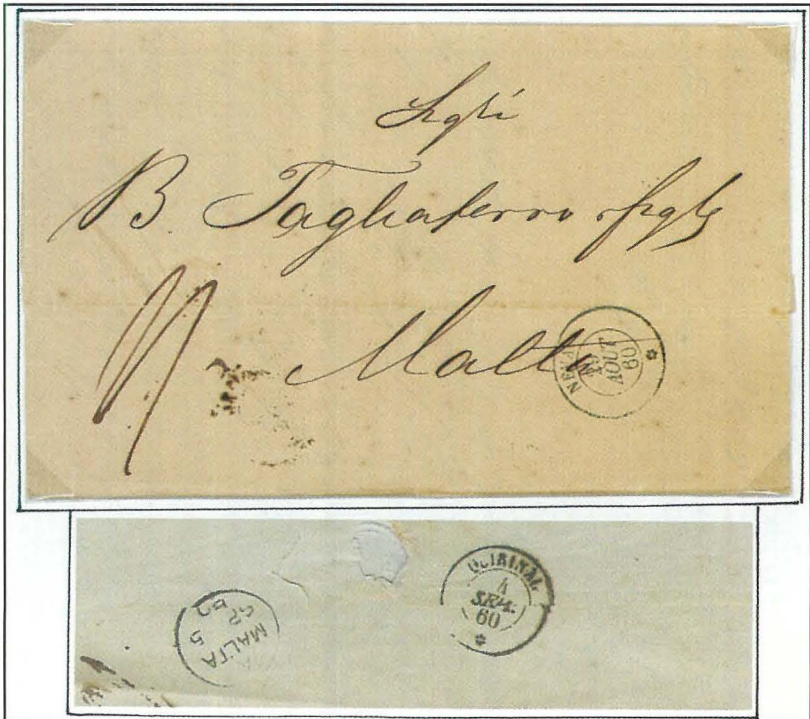 Sigri
B. Tagliaferro e figli
Malta
AOUT
60
QUIRINAL
4
SEPT.
60
MALTA
5
SP 60